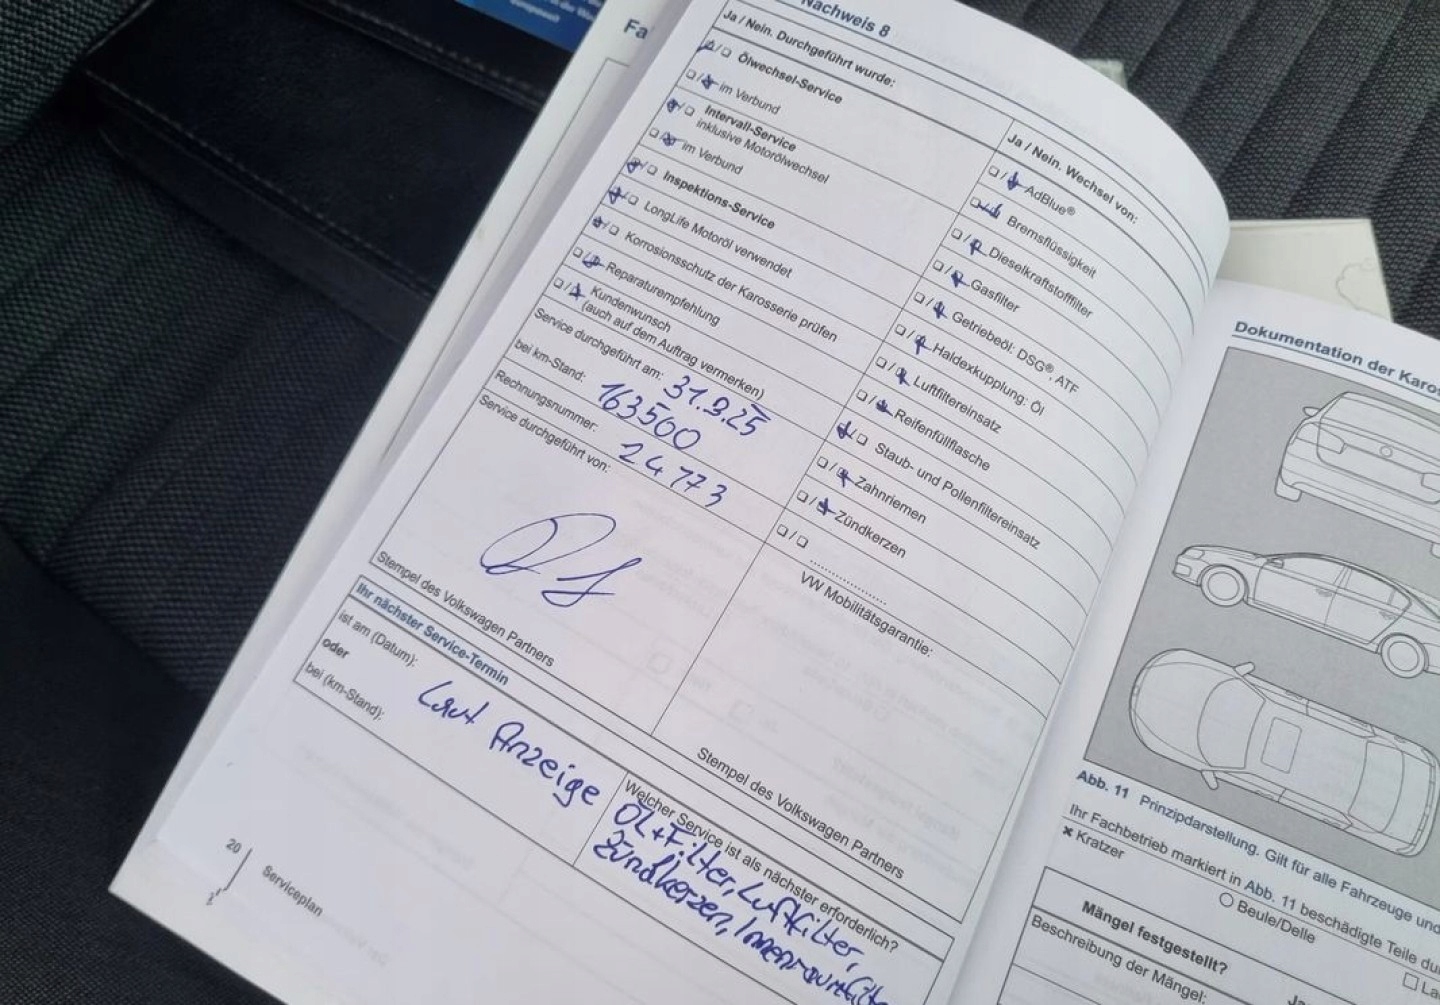 Fa
Nachweis 8
Ja / Nein. Durchgeführt wurde:
Ölwechsel-Service
im Verbund
Intervall-Service
inklusive Motorölwechsel
im Verbund
Inspektions-Service
LongLife Motoröl verwendet
Korrosionsschutz der Karosserie prüfen
Reparaturempfehlung
Kundenwunsch
(auch auf dem Auftrag vermerken)
Service durchgeführt am: 31.9.25
bei km-Stand: 163500
Rechnungsnummer: 24773
Service durchgeführt von:
Stempel des Volkswagen Partners
Ja / Nein. Wechsel von:
AdBlue®
Bremsflüssigkeit
Dieselkraftstofffilter
Gasfilter
Getriebeöl: DSG®, ATF
Haldexkupplung: Öl
Luftfiltereinsatz
Reifenfüllflasche
Staub- und Pollenfiltereinsatz
Zahnriemen
Zündkerzen
................
VW Mobilitätsgarantie:
Stempel des Volkswagen Partners
Ihr nächster Service-Termin
ist am (Datum):
oder
bei (km-Stand):
Laut Anzeige
Welcher Service ist als nächster erforderlich?
ÖL+Filter, Luftfilter,
Zündkerzen, Innenraumfilte
20
Serviceplan
Dokumentation der Karos
Abb. 11 Prinzipdarstellung. Gilt für alle Fahrzeuge und
Ihr Fachbetrieb markiert in Abb. 11 beschädigte Teile du
× Kratzer
Beule/Delle
La
Mängel festgestellt?
Beschreibung der Mängel:
Ja